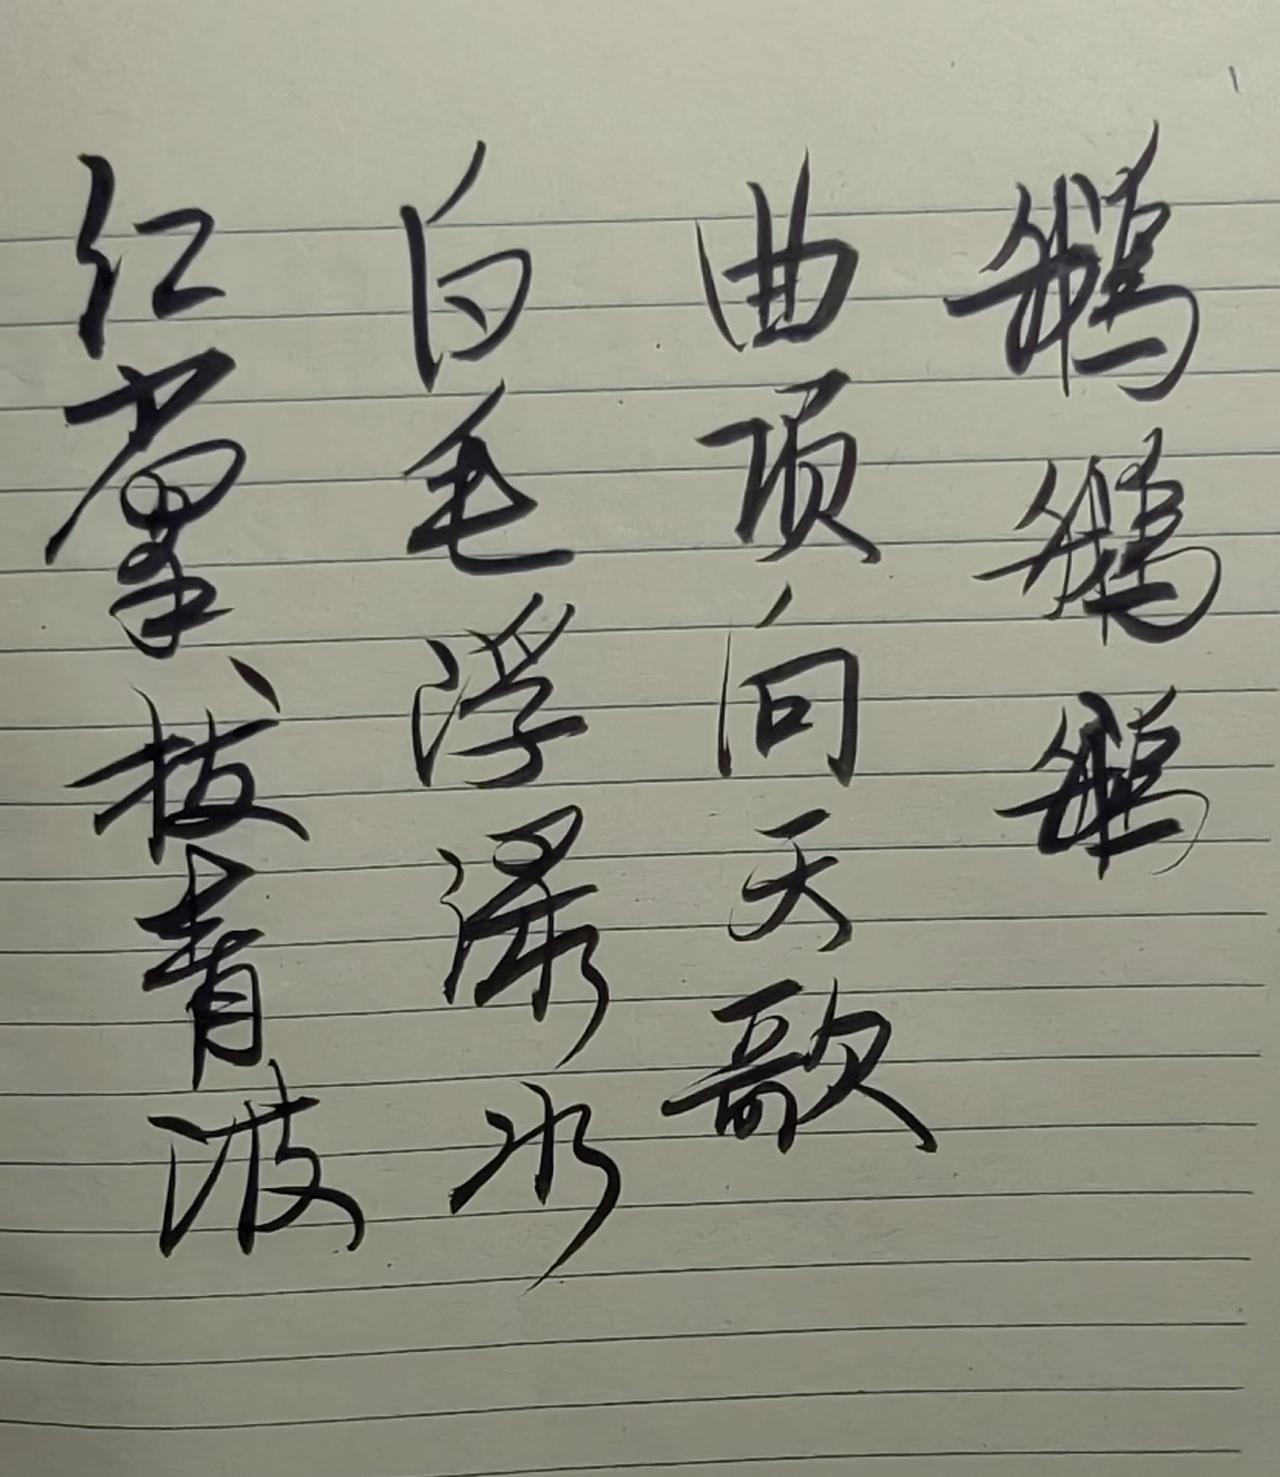 鹅鹅鹅
曲项向天歌
白毛浮渌水
红掌拨青波